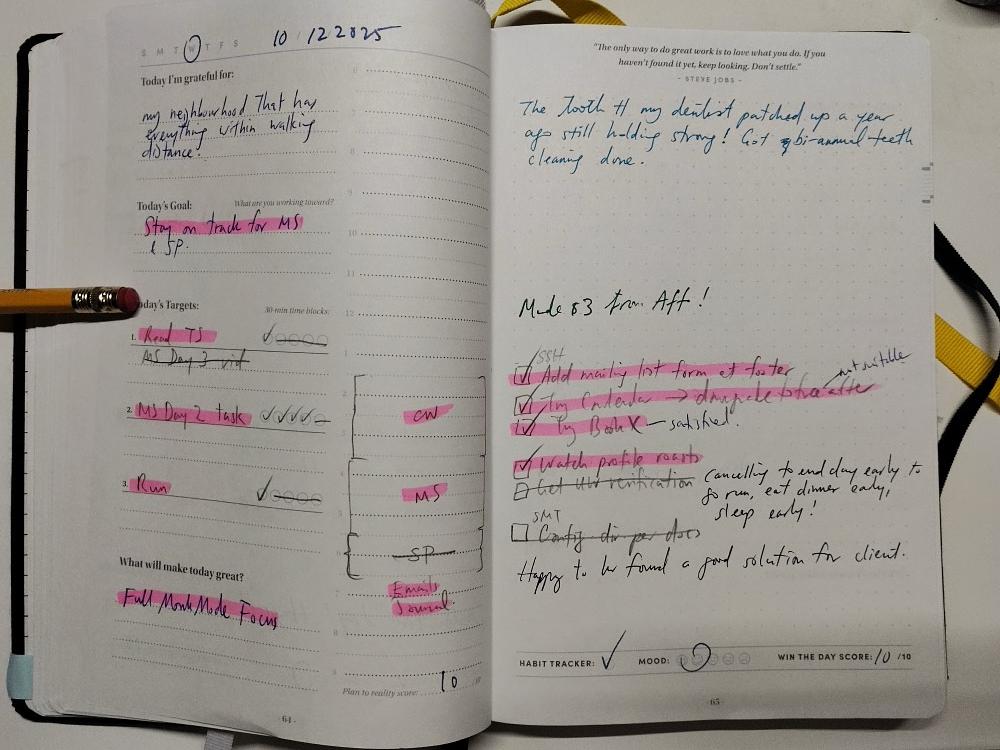 S M T W T F S
10/12 2025
Today I'm grateful for:
my neighbourhood that has
everything within walking
distance.
Today's Goal:
What are you working toward?
Stay on track for MS
& SP.
oday's Targets:
30-min time blocks:
1. Read TS
MS Day 3 vid
2. MS Day 2 task
3. Run
What will make today great?
Full Monk Mode Focus
8
9
10
11
12
1
2
CW
MS
SP
Emails
Journal
8
Plan to reality score: 10
- 64 -
"The only way to do great work is to love what you do. If you
haven't found it yet, keep looking. Don't settle."
- STEVE JOBS -
The tooth my dentist patched up a year
ago still holding strong! Got bi-annual teeth
cleaning done.
Made 83 from Aff!
SSH
Add mailing list form at footer
Try Calendar → not suitable
Try Book X — satisfied.
Watch profile roasts
Get verification
Cancelling to end day early to
go run, eat dinner early,
sleep early!
SMT
Config dir per docs
Happy to have found a good solution for client.
HABIT TRACKER: ✓ MOOD: WIN THE DAY SCORE: 10 /10
- 65 -